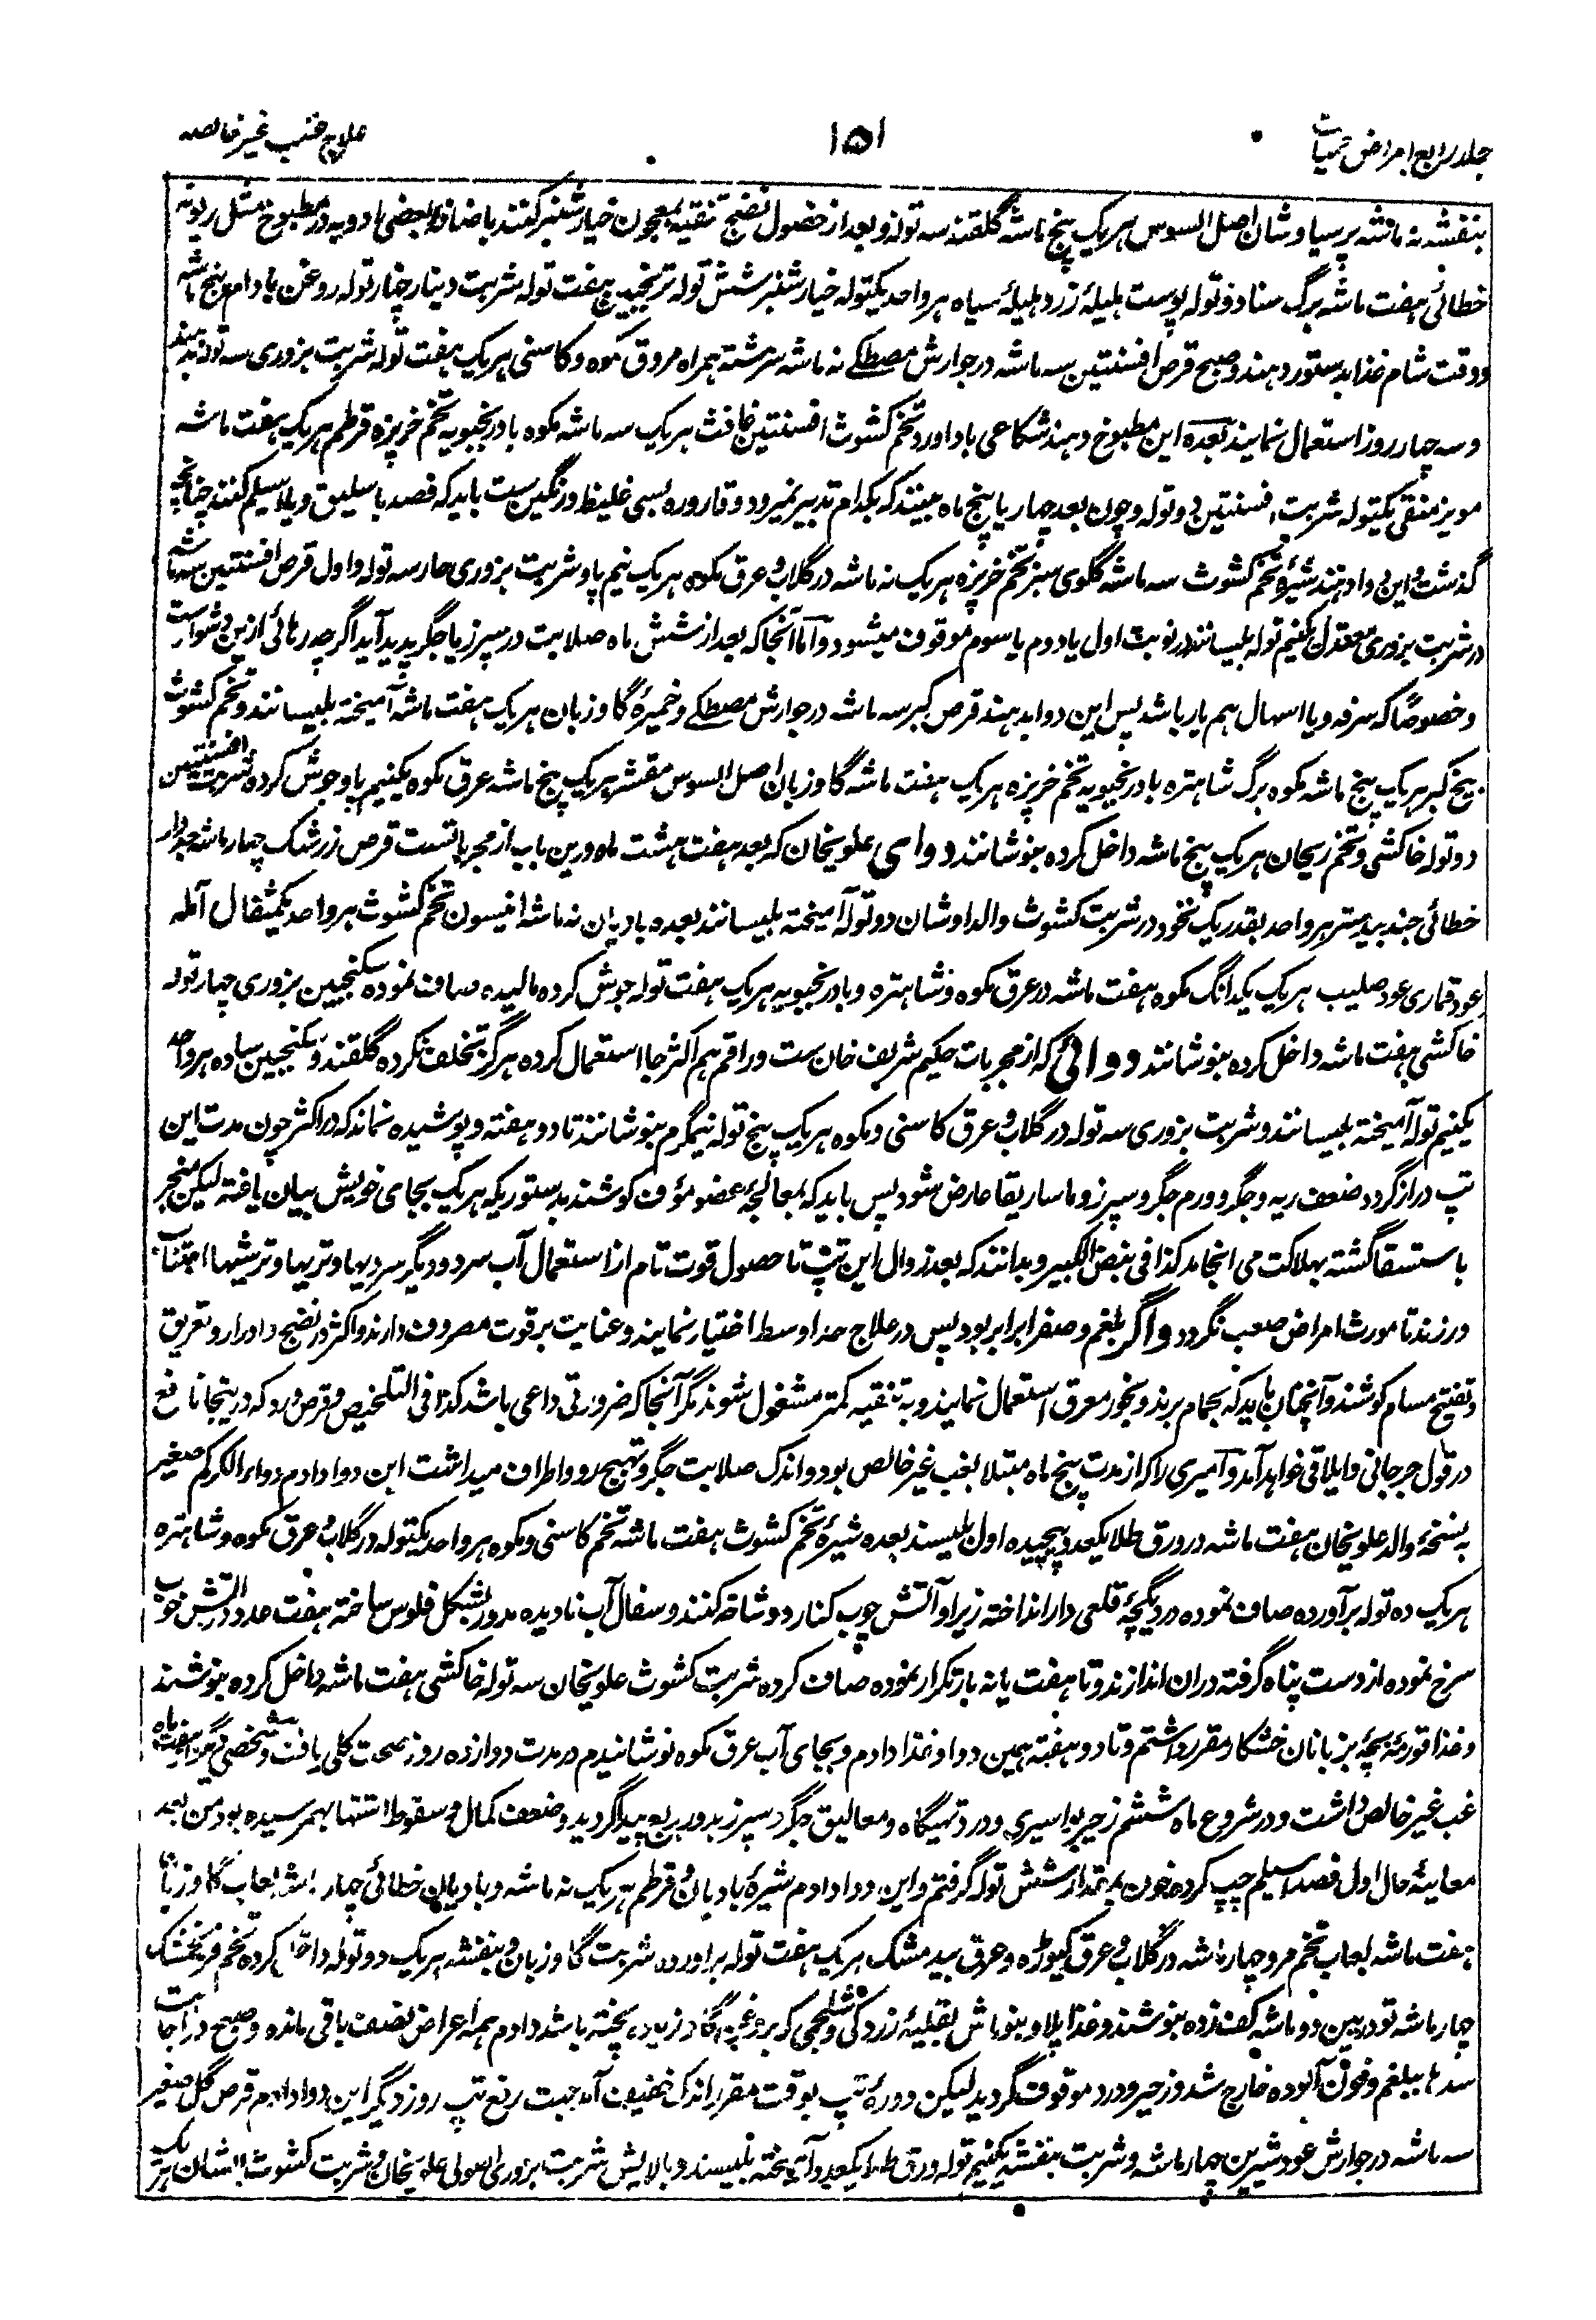 جلد رابع امراض حمیات
۱۵۱
علاج غب غیر خالصه
بنفشه نه ماشه پرسیاوشان اصل السوس هر یک پنج ماشه گلقند سه توله و بعد از حصول نضج تنقیه بمعجون خیارشنبر کنند باضافۀ بعضی ادویه در مطبوخ مثل ریوند
خطائی هفت ماشه برگ سنا دو توله پوست هلیلۀ زرد هلیلۀ سیاه هر واحد یکتوله خیارشنبر شش توله ترنجبین هفت توله شربت دینار چهار توله روغن بادام پنج ماشه
و وقت شام غذا بدستور دهند و صبح قرص افسنتین سه ماشه در جوارش مصطکی نه ماشه سرشته همراه مروق مکوه و کاسنی هر یک هفت توله شربت بزوری سه توله بدهند
و سه چهار روز استعمال نمایند بعده این مطبوخ دهند شکاعی باداورد تخم کشوث افسنتین غافث هر یک سه ماشه مکوه بادرنجبویه تخم خرپزه قرطم هر یک هفت ماشه
مویز منقی یکتوله شربت افسنتین دو توله و چون بعد چهار یا پنج ماه ببینند که بکدام تدبیر نمیرود و قاروره بسی غلیظ و رنگین ست باید که فصد باسلیق و یا اسیلم کنند چنانچه
گذشت و این دوا دهند شیرۀ تخم کشوث سه ماشه گلوی سبز تخم خرپزه هر یک نه ماشه در گلاب و عرق مکوه هر یک نیم پاو شربت بزوری حار سه توله و اول قرص افسنتین سه ماشه
در شربت بزوری معتدل یکنیم توله بلیسانند در نوبت اول یا دوم یا سوم موقوف میشود و اما آنجا که بعد از شش ماه صلابت در سپرز یا جگر پدید آید اگرچه رهائی ازین دشوارست
و خصوصاً که سرفه و یا اسهال هم یار باشد پس این دوا بدهند قرص کبر سه ماشه در جوارش مصطکی و خمیرۀ گاوزبان هر یک هفت ماشه آمیخته بلیسانند و تخم کشوث
بیخ کبر هر یک پنج ماشه مکوه برگ شاهتره بادرنجبویه تخم خرپزه هر یک هفت ماشه گاوزبان اصل السوس مقشر هر یک پنج ماشه عرق مکوه یکنیم پاو جوش کرده شربت افسنتین
دو توله خاکشی و تخم ریحان هر یک پنج ماشه داخل کرده بنوشانند دوای علویخان که بعد هفت هشت ماه درین باب از مجربات ست قرص زرشک چهار ماشه جدوار
خطائی جندبیدستر هر واحد بقدر یک نخود در شربت کشوث والد اوشان دو توله آمیخته بلیسانند بعده بادیان نه ماشه انیسون تخم کشوث هر واحد یکمثقال آمله
عود قماری عود صلیب هر یک یکدانگ مکوه هفت ماشه در عرق مکوه و شاهتره و بادرنجبویه هر یک هفت توله جوش کرده مالیده صاف نموده سکنجبین بزوری چهار توله
خاکشی هفت ماشه داخل کرده بنوشانند دوائی که از مجربات حکیم شریف خان ست و راقم هم اکثر جا استعمال کرده هرگز تخلف نکرده گلقند و سکنجبین ساده هر واحد
یکنیم توله آمیخته بلیسانند و شربت بزوری سه توله در گلاب و عرق کاسنی و مکوه هر یک پنج توله نیمگرم بنوشانند تا دو هفته و پوشیده نماند که در اکثر چون مدت این
تپ دراز گردد ضعف ریه و جگر و ورم جگر و سپرز و ماساریقا عارض شود پس باید که بمعالجۀ عضو مؤف کوشند بدستوریکه هر یک بجای خویش بیان یافته لیکن منجر
باستسقا گشته بهلاکت می انجامد کذا فی نبض الکبیر و بدانند که بعد زوال این تپ تا حصول قوت تام از استعمال آب سرد و دیگر سردیها و تریها و ترشیها اجتناب
ورزند تا مورث امراض صعب نگردد و اگر بلغم و صفرا برابر بود پس در علاج حد اوسط اختیار نمایند و عنایت بر قوت مصروف دارند و اکثر در نضج و ادرار و تعریق
و تفتیح مسام کوشند و آنچنان باید که بحمام برند و بخور معرق استعمال نمایند و به تنقیه کمتر مشغول شوند مگر آنجا که ضرورتی داعی باشد کذا فی التلخیص و قرص ورد که درینجا نافع
در قول جرجانی و ایلاقی خواهد آمد و امیری را که از مدت پنج ماه مبتلا بغب غیر خالص بود و اندک صلابت جگر و تهبج رو و اطراف میداشت این دوا دادم دواء الکرکم صغیر
به نسخۀ والد علویخان هفت ماشه در ورق طلا یکعدد پیچیده اول بلیسند بعده شیرۀ تخم کشوث هفت ماشه تخم کاسنی و مکوه هر واحد یکتوله در گلاب و عرق مکوه و شاهتره
هر یک ده توله برآورده صاف نموده در دیگچۀ قلعی دار انداخته زیر او آتش چوب کنار دو شاخه کنند و سفال آب نادیده مدور بشکل فلوس ساخته هفت عدد در آتش خوب
سرخ نموده از دست پناه گرفته دران اندازند و تا هفت یا نه بار تکرار نموده صاف کرده شربت کشوث علویخان سه توله خاکشی هفت ماشه داخل کرده بنوشند
و غذا قورمۀ بچۀ بز با نان خشکار مقرر داشتم و تا دو هفته همین دوا و غذا دادم و بجای آب عرق مکوه نوشانیدم در مدت دوازده روز صحت کلی یافت و شخصی دیگر از هفت ماه
غب غیر خالص داشت و در شروع ماه ششم زحیر بواسیری و درد تهیگاه و معالیق جگر و سپرز بدور ربع پیدا گردید و ضعف کمال و سقوط اشتها بهم رسیده بود من بعد
معاینۀ حال اول فصد اسیلم چپ کرده خون بمقدار شش توله گرفتم و این دوا دادم شیرۀ بادیان و قرطم هر یک نه ماشه و بادیان خطائی چهار ماشه لعاب گاوزبان
هفت ماشه لعاب تخم مرو چهار ماشه در گلاب و عرق کیوڑه و عرق بیدمشک هر یک هفت توله برآورده شربت گاوزبان و بنفشه هر یک دو توله داخل کرده تخم فرنجمشک
چهار ماشه تودریین دو ماشه کف زده بنوشند و غذا پلاو بنوماش بقلیۀ زردکی و شلجمی که بروغن گاو زیاد پخته باشند دادم همه اعراض نصف باقی ماند و صبح در اجابت
سدها ببلغم و خون آلوده خارج شد و زحیر و درد موقوف گردید لیکن دورۀ تپ بوقت مقرر اندک خفیف آمد جهت رفع تپ روز دیگر این دوا دادم قرص گل صغیر
سه ماشه در جوارش عود شیرین چهار ماشه و شربت بنفشه یکنیم توله ورق طلا یکعدد آمیخته بلیسند و بالایش شربت بزوری اصولی علویخان و شربت کشوث ایشان هر یک